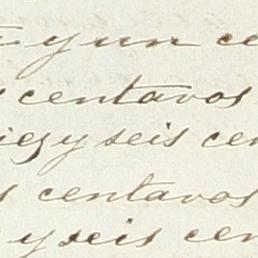 y un ce
s centavos
iez y seis cen
s centavos
y seis cen